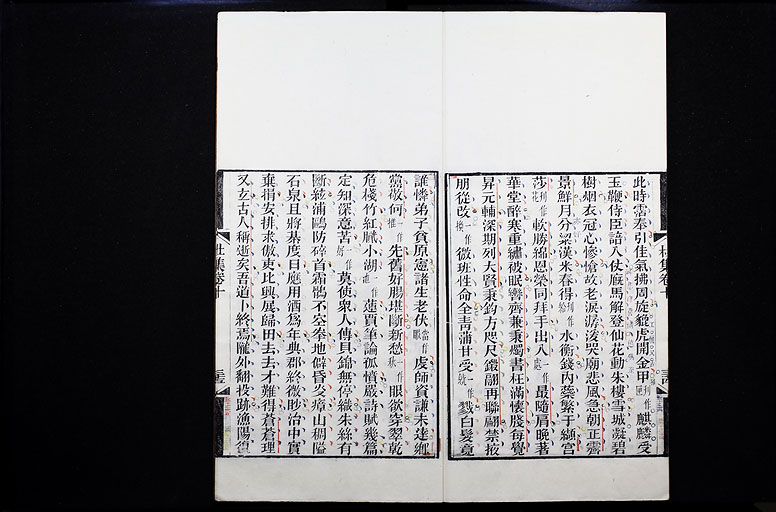 此時霑奉引佳氣拂周旋貔虎開金甲麒麟受
玉鞭侍臣諳入仗廐馬解登仙花動朱樓雪城凝碧
樹烟衣冠心慘愴故老淚潺湲哭廟悲風急朝正霽
景鮮月分梁漢米春得水衡錢內蘂繁于纈宮
莎軟勝綿恩榮同拜手出入最隨肩晚著
華堂醉寒重繡被眠轡齊兼秉燭書枉滿懷牋每覺
昇元輔深期列大賢秉鈞方咫尺鎩翮再聯翩禁掖
朋從改微班性命全青蒲甘受戮白髮竟
杜集卷十
誰憐弟子貧原憲諸生老伏虔師資謙未達鄉
黨敬何先舊好腸堪斷新愁眼欲穿翠乾
危棧竹紅膩小湖蓮賈筆論孤憤嚴詩賦幾篇
定知深意苦莫使衆人傳貝錦無停織朱絲有
斷絃浦鷗防碎首霜鶻不空拳地僻昏炎瘴山稠隘
石泉且將棊度日應用酒爲年典郡終微眇治中實
棄捐安排求傲吏比興展歸田去去才難得蒼蒼理
又玄古人稱逝矣吾道卜終焉隴外翻投跡漁陽復
杜集卷十